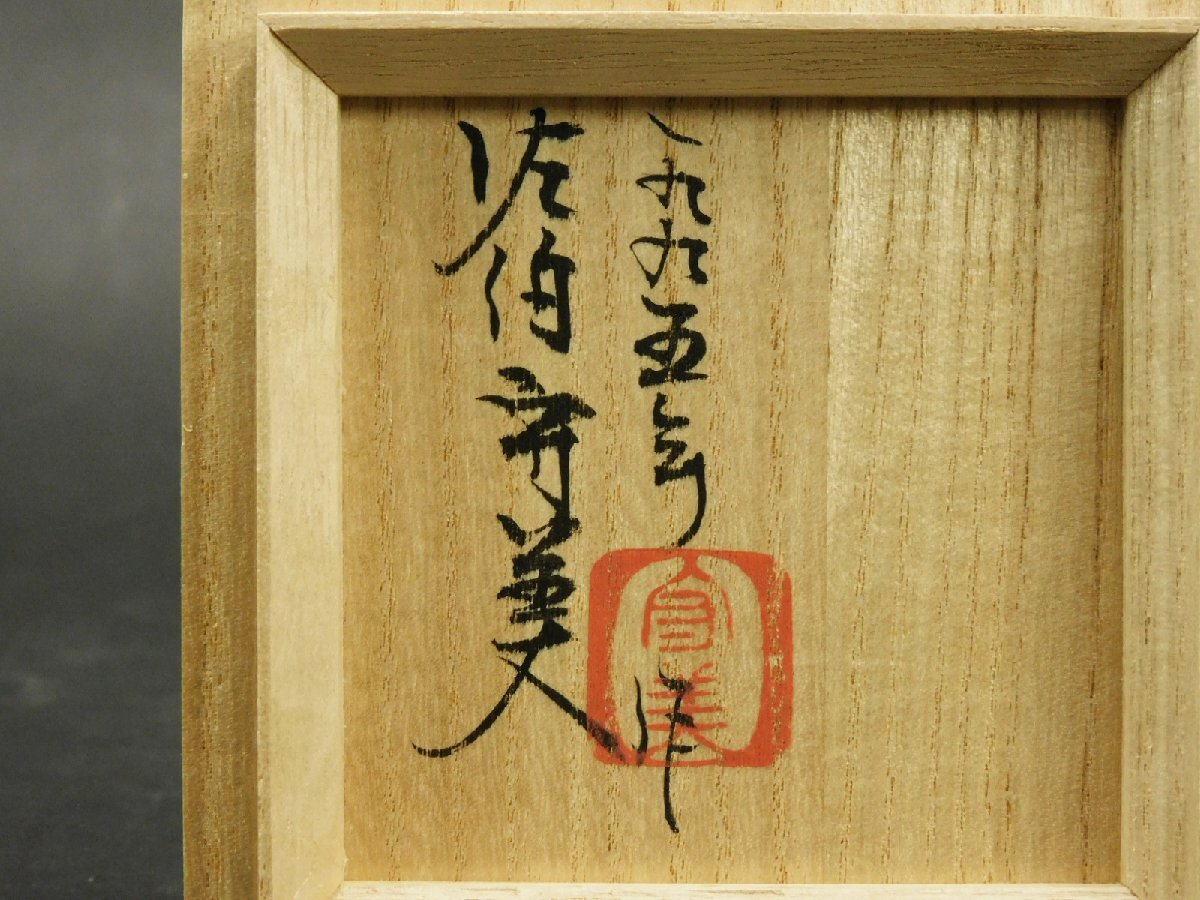 一九九五年作
佐伯守美
守美